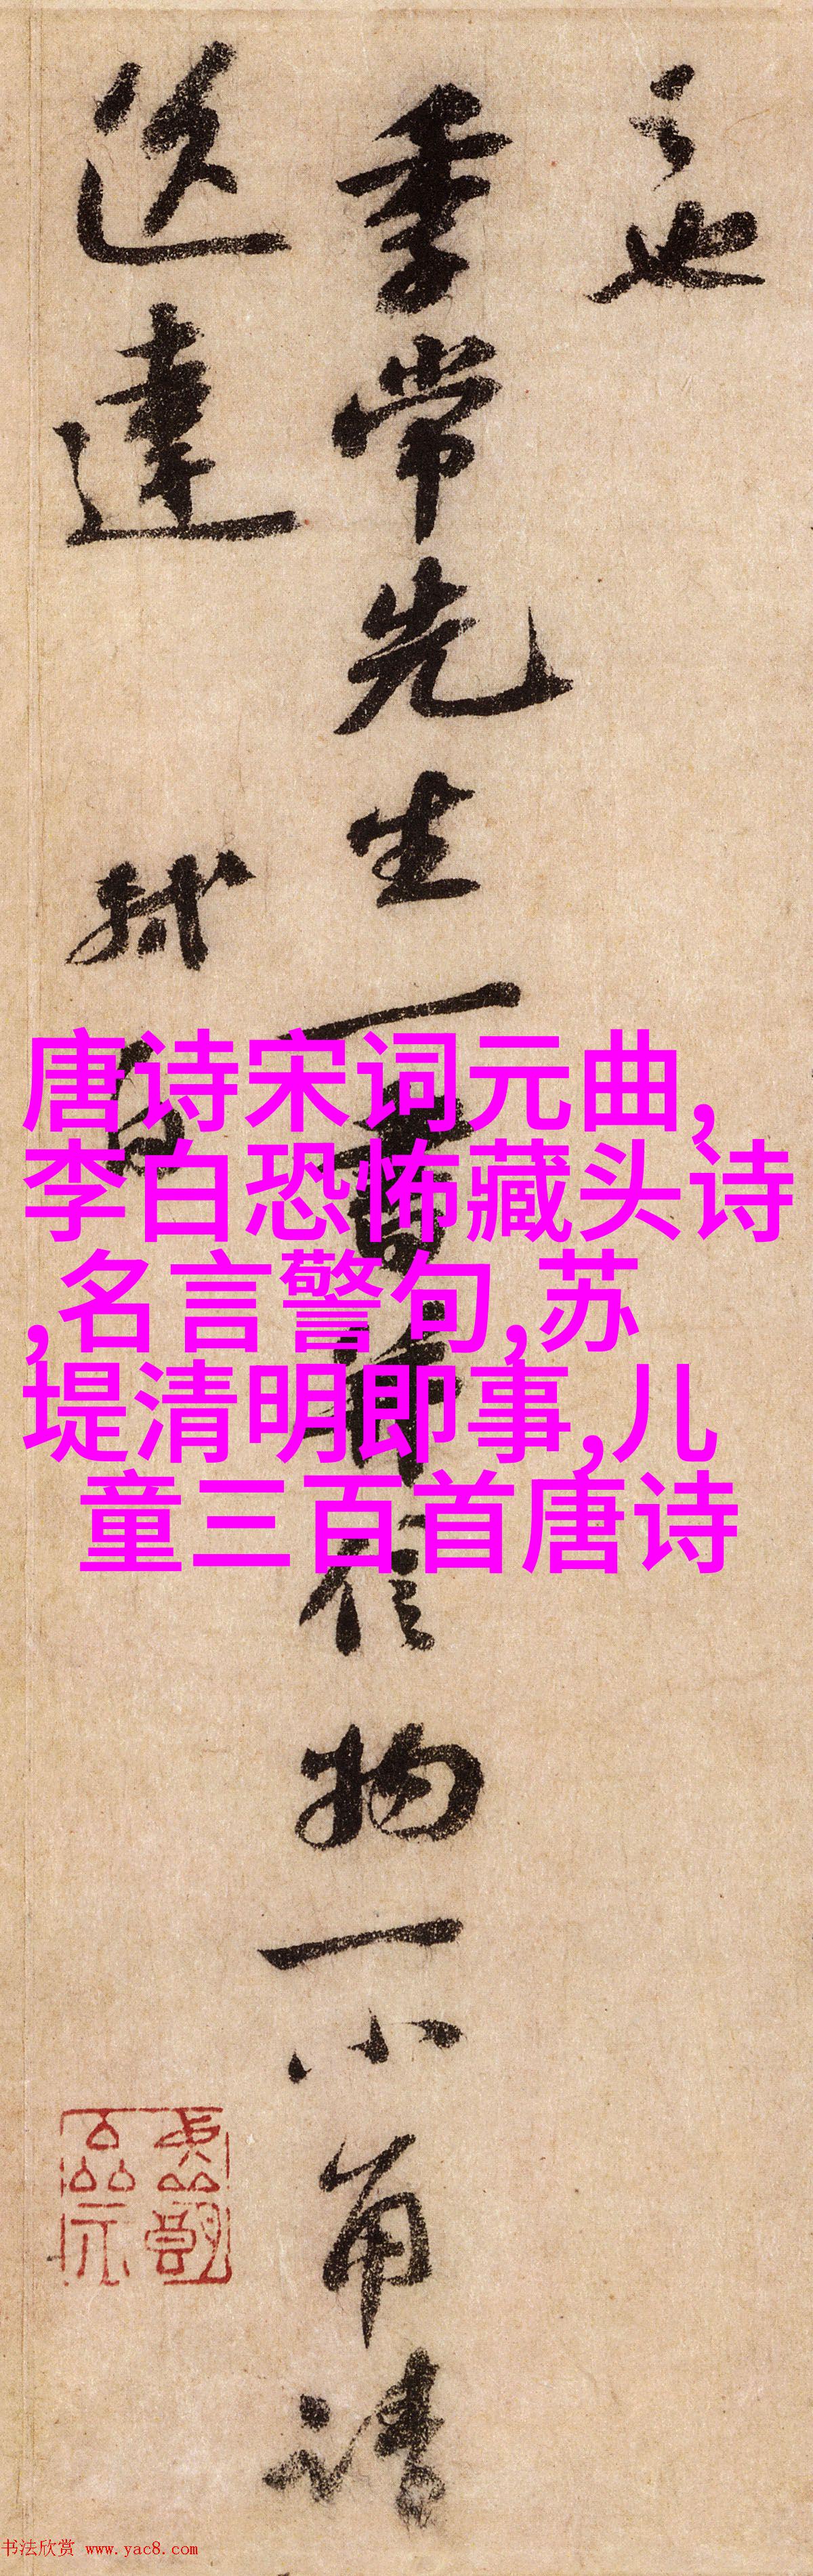 之也
季常先生一書并信物一小角請
送達 軾白
唐诗宋词元曲,
李白恐怖藏头诗
,名言警句,苏
堤清明即事,儿
童三百首唐诗
书法欣赏 www.yac8.com